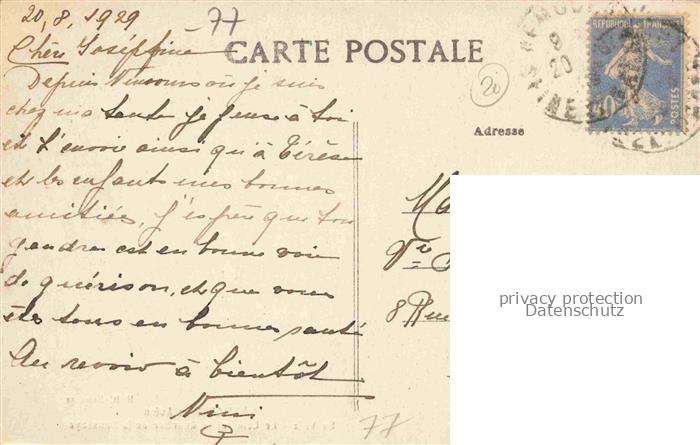 20, 8, 1929
77
Chère Joséphine
CARTE POSTALE
Depuis où je suis
chez ma tante je pense à toi
et t'envoie ainsi qu'à Térèse
et les enfants mes bonnes
amitiés, j'espère que ton
gendre est en bonne voie
de guérison, et que vous
êtes tous en bonne santé
Au revoir à bientôt
Nini
20
Adresse
RÉPUBLIQUE FRANÇAISE
POSTES
Ve
8 Rue
privacy protection
Datenschutz
77